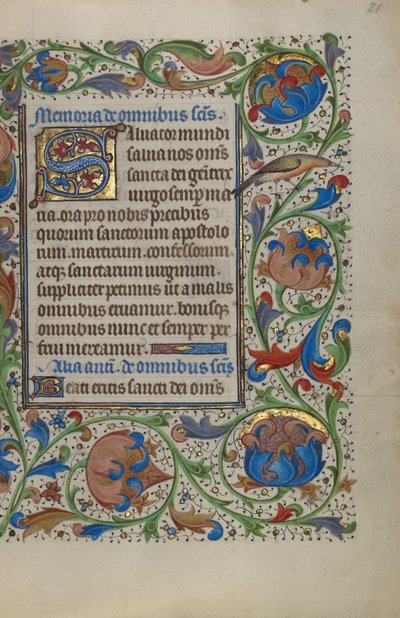 21
Memoria de omnibus scīs.
Saluator mundi
salua nos om̄s
sancta dei genitrix
uirgo semper ma
ria. ora pro nobis precibus
quorum sanctorum apostolo
rum. martirum. confessorum.
atq̄ sanctarum uirginum.
suppliciter petimus ut a malis
omnibus eruamur. bonisq̄
omnibus nunc et semper per
frui mereamur.
Alia anti. de omnibus scīs
Beati eritis sancti dei om̄s